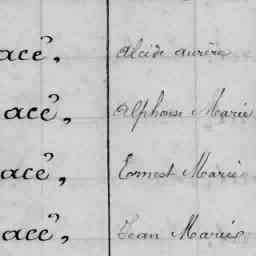 acé, Alcide Aurère
acé, Alphonse Marie
acé, Ernest Marie
acé, Jean Marie